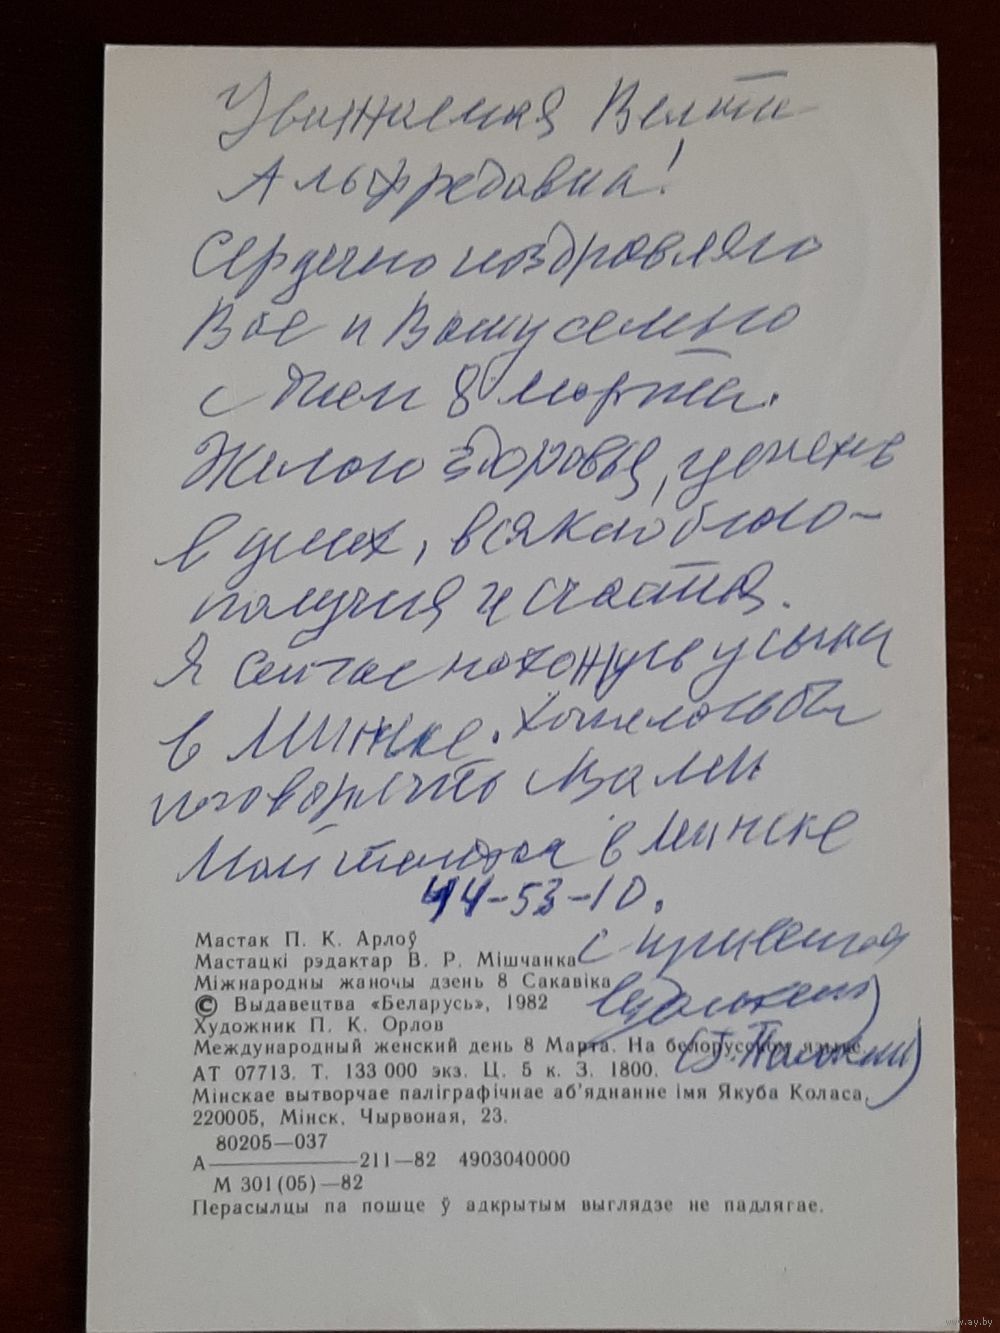 Уважаемая Велта
Альфредовна!
Сердечно поздравляю
Вас и Вашу семью
с Днем 8 марта.
Желаю здоровья, успехов
в делах, всякого благо-
получия и счастья.
Я сейчас нахожусь у сына
в Минске. Хотелось бы
поговорить с Вами
Мой телефон в Минске
44-53-10.
С приветом
Мастак П. К. Арлоў
Мастацкі рэдактар В. Р. Мішчанка
Міжнародны жаночы дзень 8 Сакавіка
© Выдавецтва «Беларусь», 1982
Художник П. К. Орлов
Международный женский день 8 Марта. На белорусском языке.
АТ 07713. Т. 133 000 экз. Ц. 5 к. З. 1800.
Мінскае вытворчае паліграфічнае аб'яднанне імя Якуба Коласа.
220005, Мінск, Чырвоная, 23.
80205—037
А———211—82 4903040000
М 301(05)—82
Перасылцы па пошце ў адкрытым выглядзе не падлягае.
www.ay.by